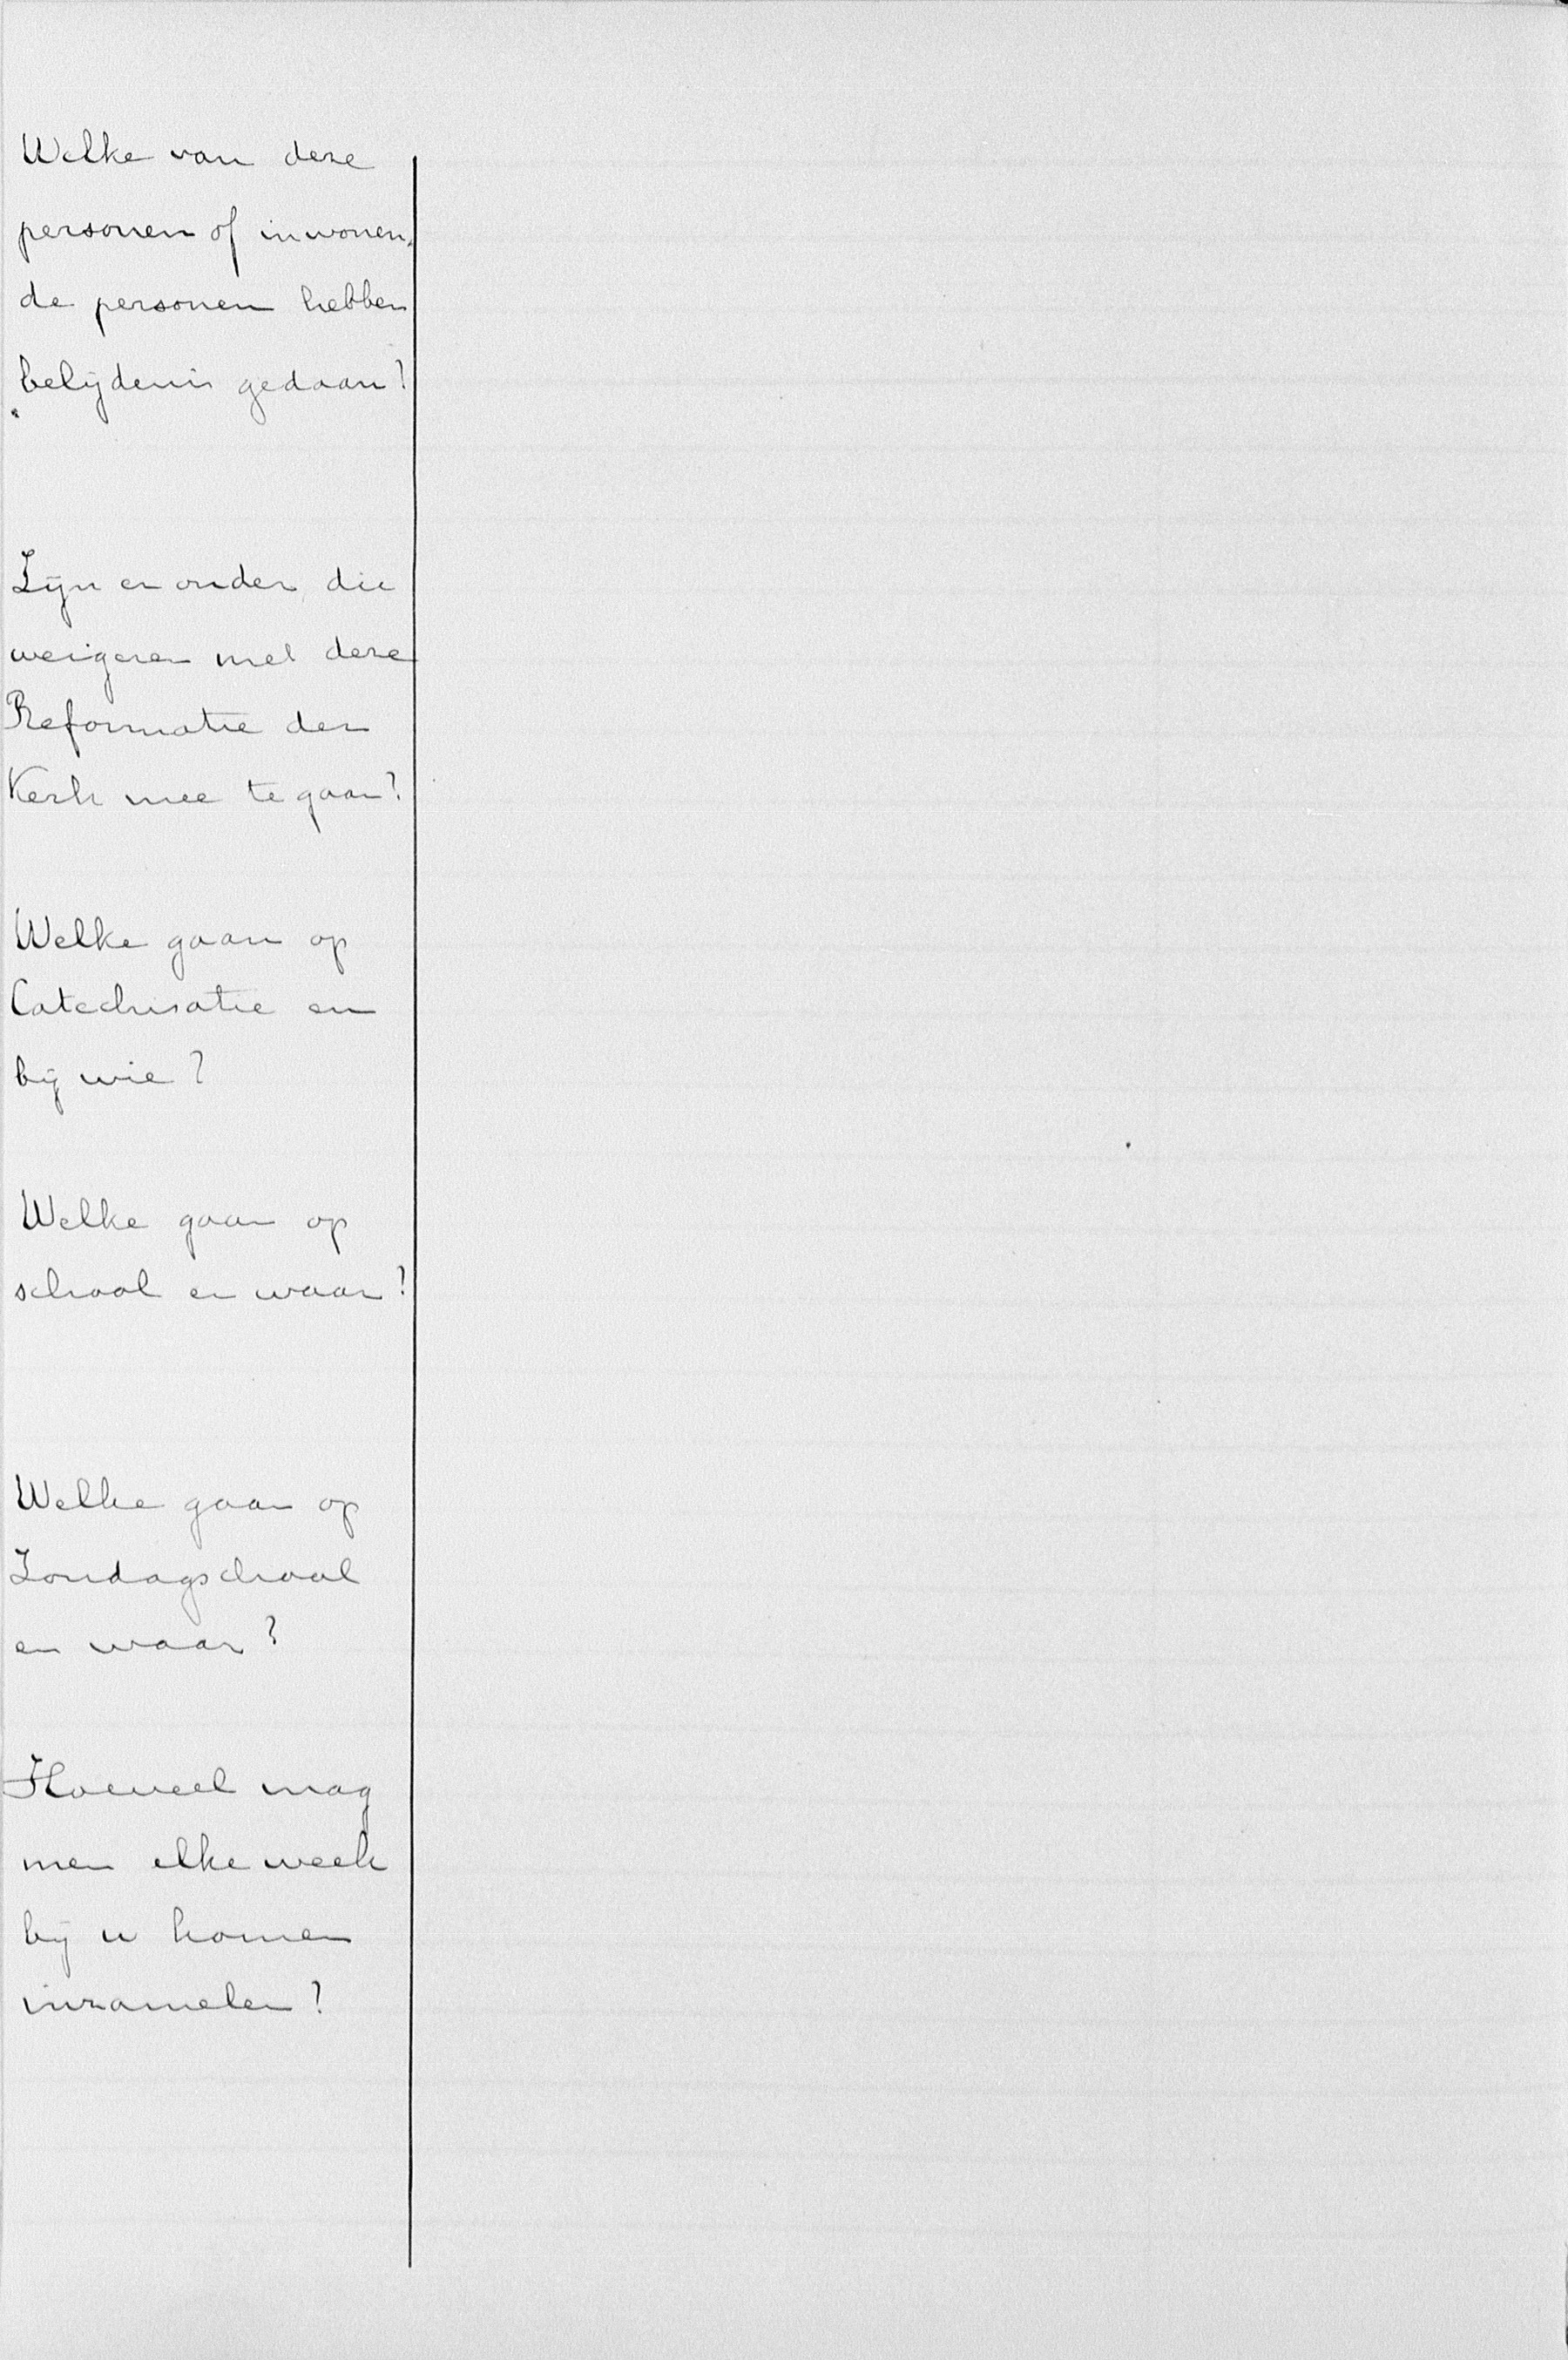 Welke van deze
personen of inwonen-
de personen hebben
belijdenis gedaan?
Zijn er onder, die
weigeren met deze
Reformatie der
Kerk mee te gaan?
Welke gaan op
Catechisatie en
bij wie?
Welke gaan op
school en waar?
Welke gaan op
Zondagschool
en waar?
Hoeveel mag
men elke week
bij u komen
inzamelen?